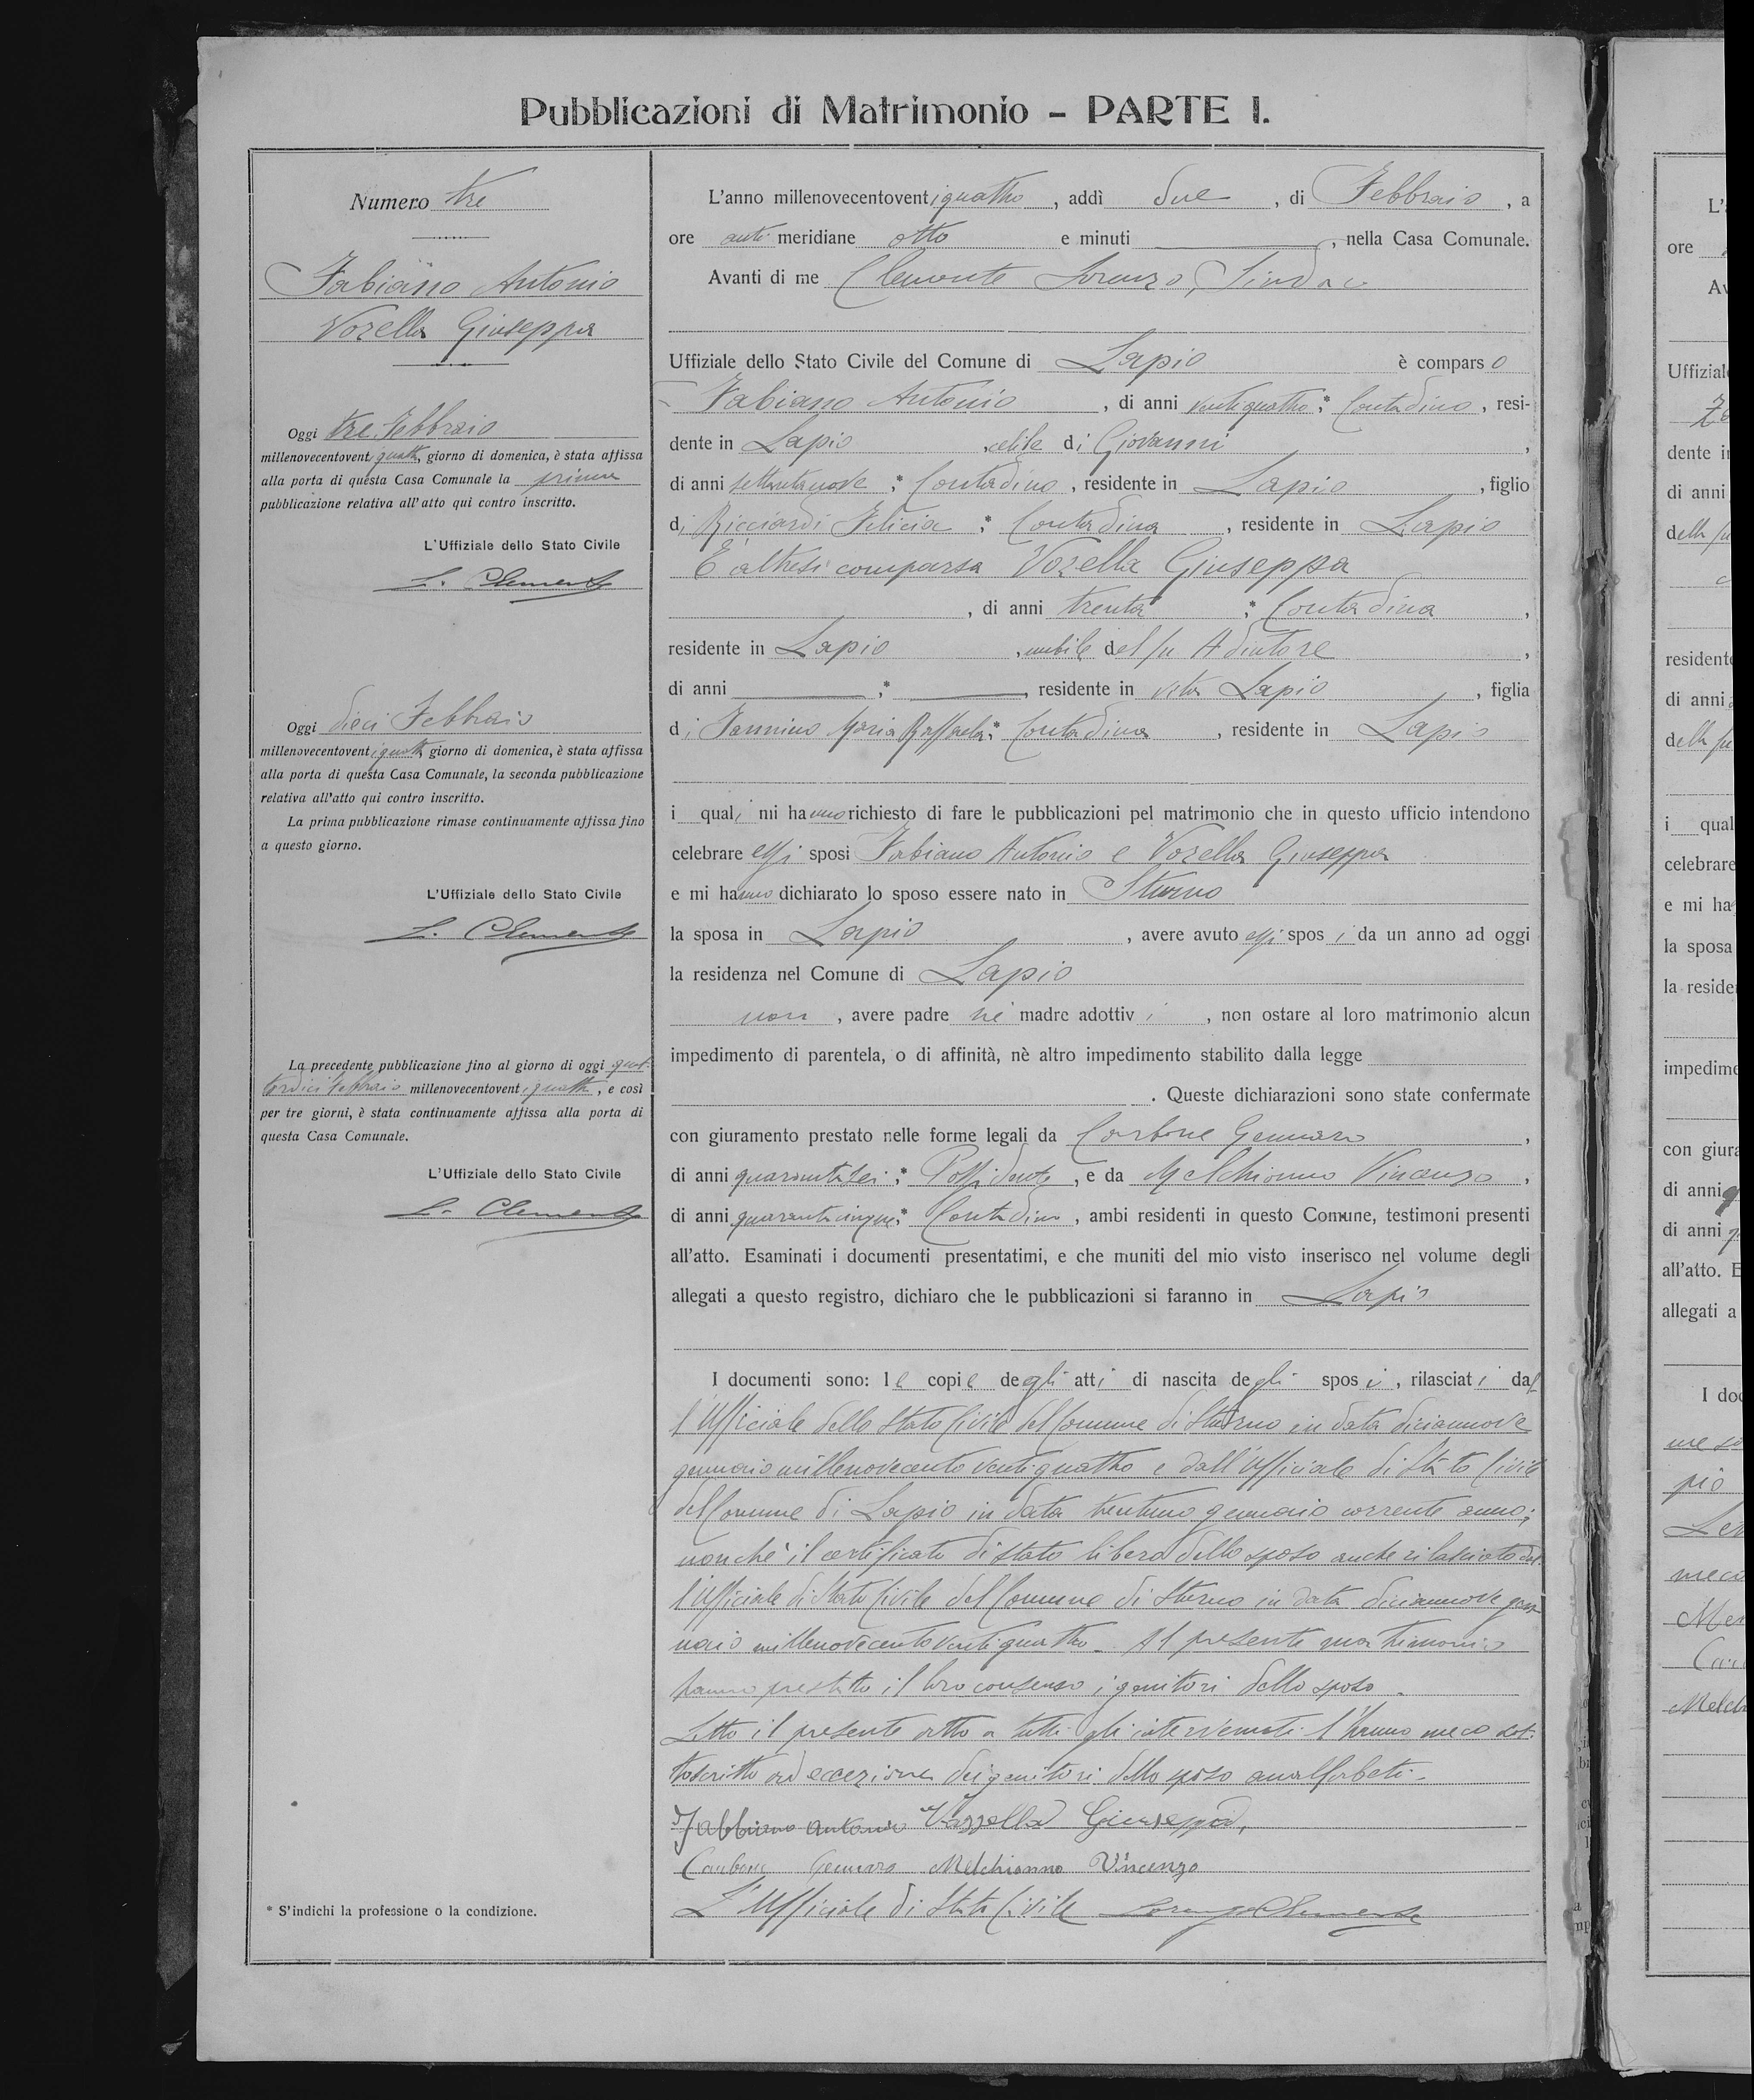 Pubblicazioni di Matrimonio - PARTE I.
Numero tre
Fabiano Antonio
Vozella Giuseppa
Oggi tre Febbraio
millenovecentoventiquattro, giorno di domenica, è stata affissa
alla porta di questa Casa Comunale la prima
pubblicazione relativa all'atto qui contro inscritto.
L'Uffiziale dello Stato Civile
L. Clemente
Oggi dieci Febbraio
millenovecentoventiquattro, giorno di domenica, è stata affissa
alla porta di questa Casa Comunale, la seconda pubblicazione
relativa all'atto qui contro inscritto.
La prima pubblicazione rimase continuamente affissa fino
a questo giorno.
L'Uffiziale dello Stato Civile
L. Clemente
La precedente pubblicazione fino al giorno di oggi quat-
tordici Febbraio millenovecentoventiquattro, e così
per tre giorni, è stata continuamente affissa alla porta di
questa Casa Comunale.
L'Uffiziale dello Stato Civile
L. Clemente
* S'indichi la professione o la condizione.
L'anno millenovecentoventiquattro, addì due, di Febbraio, a
ore anti meridiane otto e minuti ———, nella Casa Comunale.
Avanti di me Clemente Lorenzo, Sindaco
Uffiziale dello Stato Civile del Comune di Lapio è comparso
Fabiano Antonio, di anni ventiquattro;* Contadino, resi-
dente in Lapio, celibe di Giovanni,
di anni settantanove;* Contadino, residente in Lapio, figlio
di Ricciardi Felicia;* Contadina, residente in Lapio
E' altresì comparsa Vozella Giuseppa
, di anni trenta;* Contadina,
residente in Lapio, nubile del fu Adiutore,
di anni ———;* ———, residente in vita Lapio, figlia
di Iannino Maria Raffaela;* Contadina, residente in Lapio
i quali mi hanno richiesto di fare le pubblicazioni pel matrimonio che in questo ufficio intendono
celebrare essi sposi Fabiano Antonio e Vozella Giuseppa
e mi hanno dichiarato lo sposo essere nato in Sturno
la sposa in Lapio, avere avuto essi sposi da un anno ad oggi
la residenza nel Comune di Lapio
non, avere padre nè madre adottivi, non ostare al loro matrimonio alcun
impedimento di parentela, o di affinità, nè altro impedimento stabilito dalla legge
. Queste dichiarazioni sono state confermate
con giuramento prestato nelle forme legali da Carbone Gennaro,
di anni quarantasei;* Possidente, e da Melchionno Vincenzo,
di anni quarantacinque;* Contadino, ambi residenti in questo Comune, testimoni presenti
all'atto. Esaminati i documenti presentatimi, e che muniti del mio visto inserisco nel volume degli
allegati a questo registro, dichiaro che le pubblicazioni si faranno in Lapio
I documenti sono: le copie degli atti di nascita degli sposi, rilasciati dal
l'Ufficiale dello Stato Civile del Comune di Sturno in data diciannove
gennaio millenovecentoventiquattro e dall'Ufficiale di Stato Civile
del Comune di Lapio in data trentuno gennaio corrente anno;
nonchè il certificato di stato libero dello sposo anche rilasciato dal-
l'Ufficiale di Stato Civile del Comune di Sturno in data diciannove gen-
naio millenovecentoventiquattro. Al presente matrimonio
hanno prestato il loro consenso i genitori dello sposo.
Letto il presente atto a tutti gli intervenuti l'hanno meco sot-
toscritto ad eccezione dei genitori dello sposo analfabeti.
Fabbiano Antonio Vozzella Giuseppa,
Carbone Gennaro Melchionno Vincenzo
L'Ufficiale di Stato Civile Lorenzo Clemente
L'
ore
Av
Uffiziale
dente in
di anni
della fu
residente
di anni
della fu
i qual
celebrare
e mi ha
la sposa
la reside
impedime
con giura
di anni
di anni
all'atto. E
allegati a
I doc
pio
meco